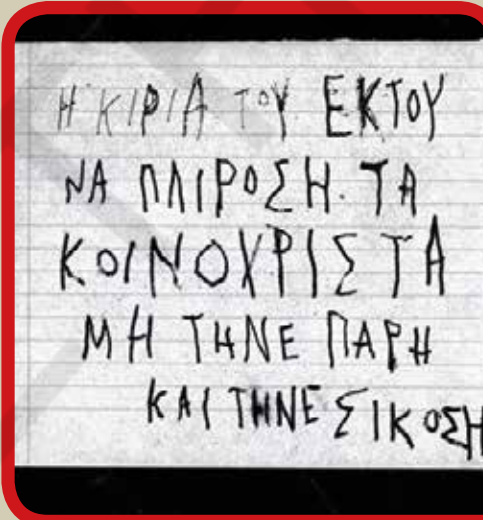 Η ΚΙΡΙΑ ΤΟΥ ΕΚΤΟΥ
ΝΑ ΠΛΙΡΟΣΗ. ΤΑ
ΚΟΙΝΟΧΡΙΣΤΑ
ΜΗ ΤΗΝΕ ΠΑΡΗ
ΚΑΙ ΤΗΝΕ ΣΙΚΟΣΗ